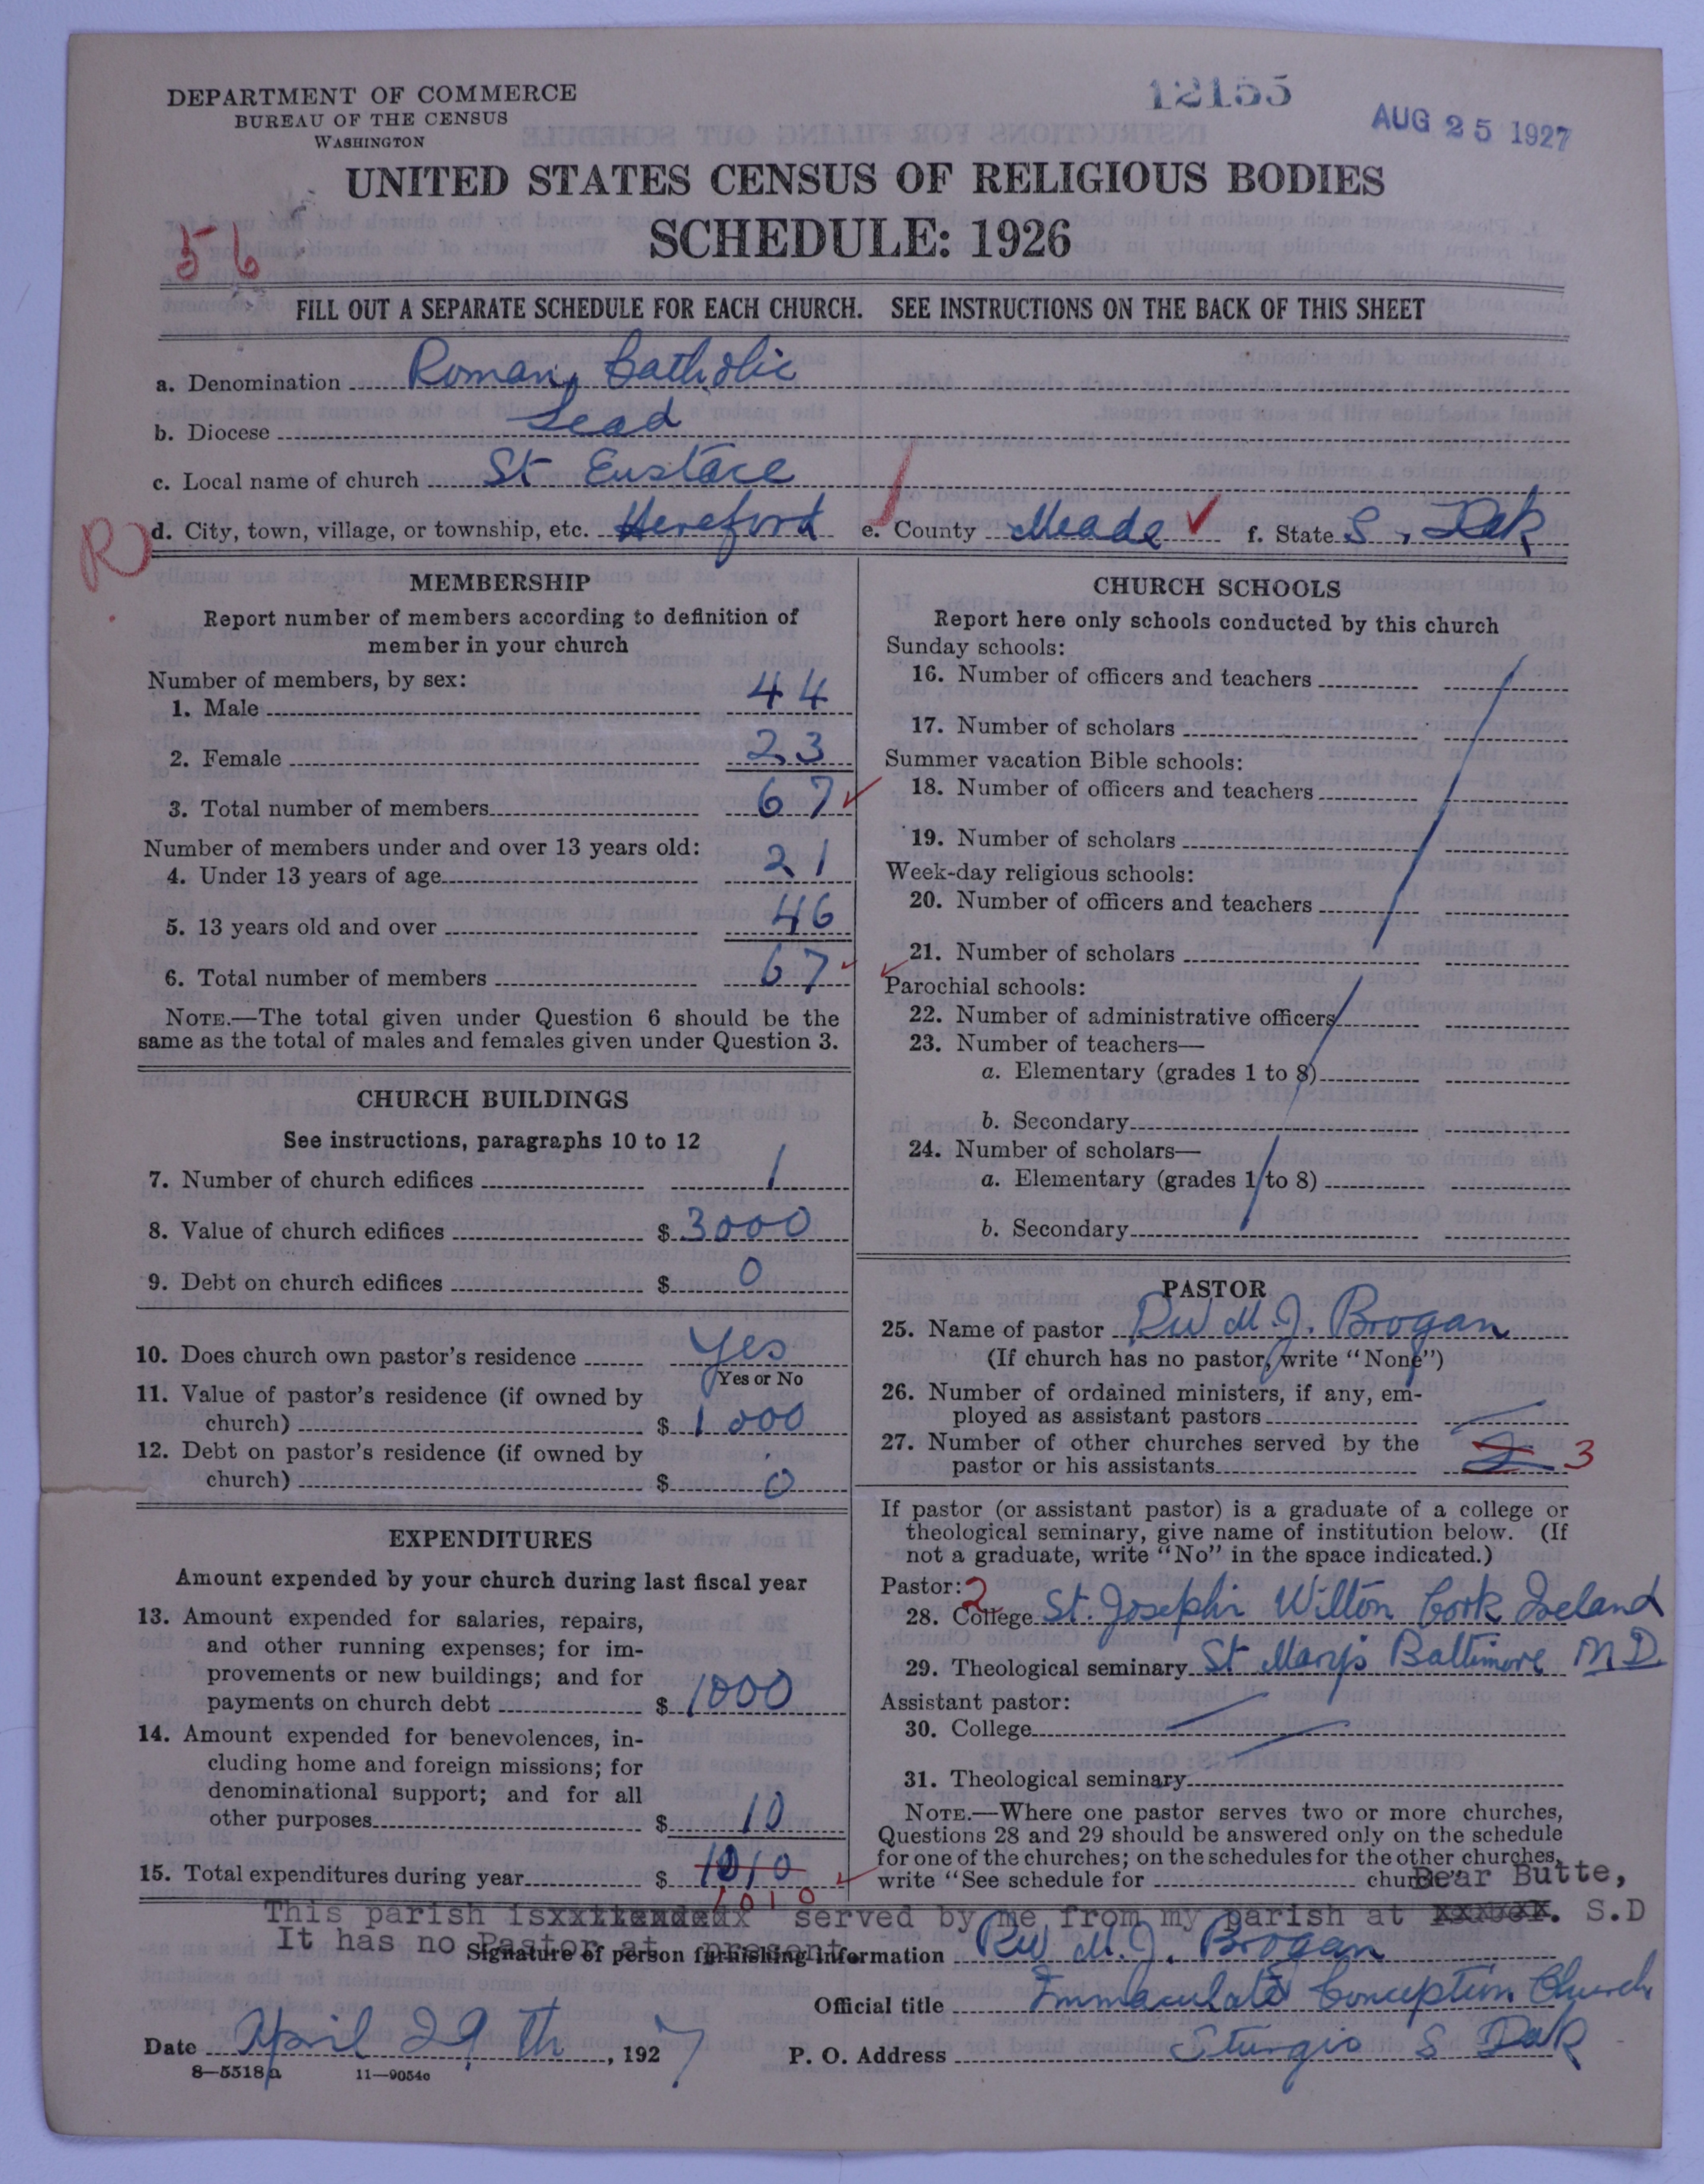 DEPARTMENT OF COMMERCE
BUREAU OF THE CENSUS
WASHINGTON
12155
AUG 25 1927
UNITED STATES CENSUS OF RELIGIOUS BODIES
SCHEDULE: 1926
56
FILL OUT A SEPARATE SCHEDULE FOR EACH CHURCH. SEE INSTRUCTIONS ON THE BACK OF THIS SHEET
a. Denomination Roman Catholic
b. Diocese Lead
c. Local name of church St Eustace
R d. City, town, village, or township, etc. Hereford e. County Meade f. State S. Dak
MEMBERSHIP
Report number of members according to definition of
member in your church
Number of members, by sex:
1. Male 44
2. Female 23
3. Total number of members 67
Number of members under and over 13 years old:
4. Under 13 years of age 21
5. 13 years old and over 46
6. Total number of members 67
NOTE.—The total given under Question 6 should be the
same as the total of males and females given under Question 3.
CHURCH BUILDINGS
See instructions, paragraphs 10 to 12
7. Number of church edifices 1
8. Value of church edifices $ 3000
9. Debt on church edifices $ 0
10. Does church own pastor's residence Yes
Yes or No
11. Value of pastor's residence (if owned by
church) $ 1000
12. Debt on pastor's residence (if owned by
church) $ 0
EXPENDITURES
Amount expended by your church during last fiscal year
13. Amount expended for salaries, repairs,
and other running expenses; for im-
provements or new buildings; and for
payments on church debt $ 1000
14. Amount expended for benevolences, in-
cluding home and foreign missions; for
denominational support; and for all
other purposes $ 10
15. Total expenditures during year $ 1010
1010
CHURCH SCHOOLS
Report here only schools conducted by this church
Sunday schools:
16. Number of officers and teachers
17. Number of scholars
Summer vacation Bible schools:
18. Number of officers and teachers
19. Number of scholars
Week-day religious schools:
20. Number of officers and teachers
21. Number of scholars
Parochial schools:
22. Number of administrative officers
23. Number of teachers—
a. Elementary (grades 1 to 8)
b. Secondary
24. Number of scholars—
a. Elementary (grades 1 to 8)
b. Secondary
PASTOR
25. Name of pastor Rev M. J. Brogan
(If church has no pastor, write "None")
26. Number of ordained ministers, if any, em-
ployed as assistant pastors
27. Number of other churches served by the
pastor or his assistants 2 3
If pastor (or assistant pastor) is a graduate of a college or
theological seminary, give name of institution below. (If
not a graduate, write "No" in the space indicated.)
Pastor: 2
28. College St. Josephs Wilton Cork Ireland
29. Theological seminary St Marys Baltimore MD
Assistant pastor:
30. College
31. Theological seminary
NOTE.—Where one pastor serves two or more churches,
Questions 28 and 29 should be answered only on the schedule
for one of the churches; on the schedules for the other churches,
write "See schedule for church." Bear Butte,
This parish is served by me from my parish at S.D
It has no Pastor at present.
Signature of person furnishing information Rev M. J. Brogan
Official title Immaculate Conception Church
Date April 29th, 1927 P. O. Address Sturgis S Dak
8—5518a 11—9054c